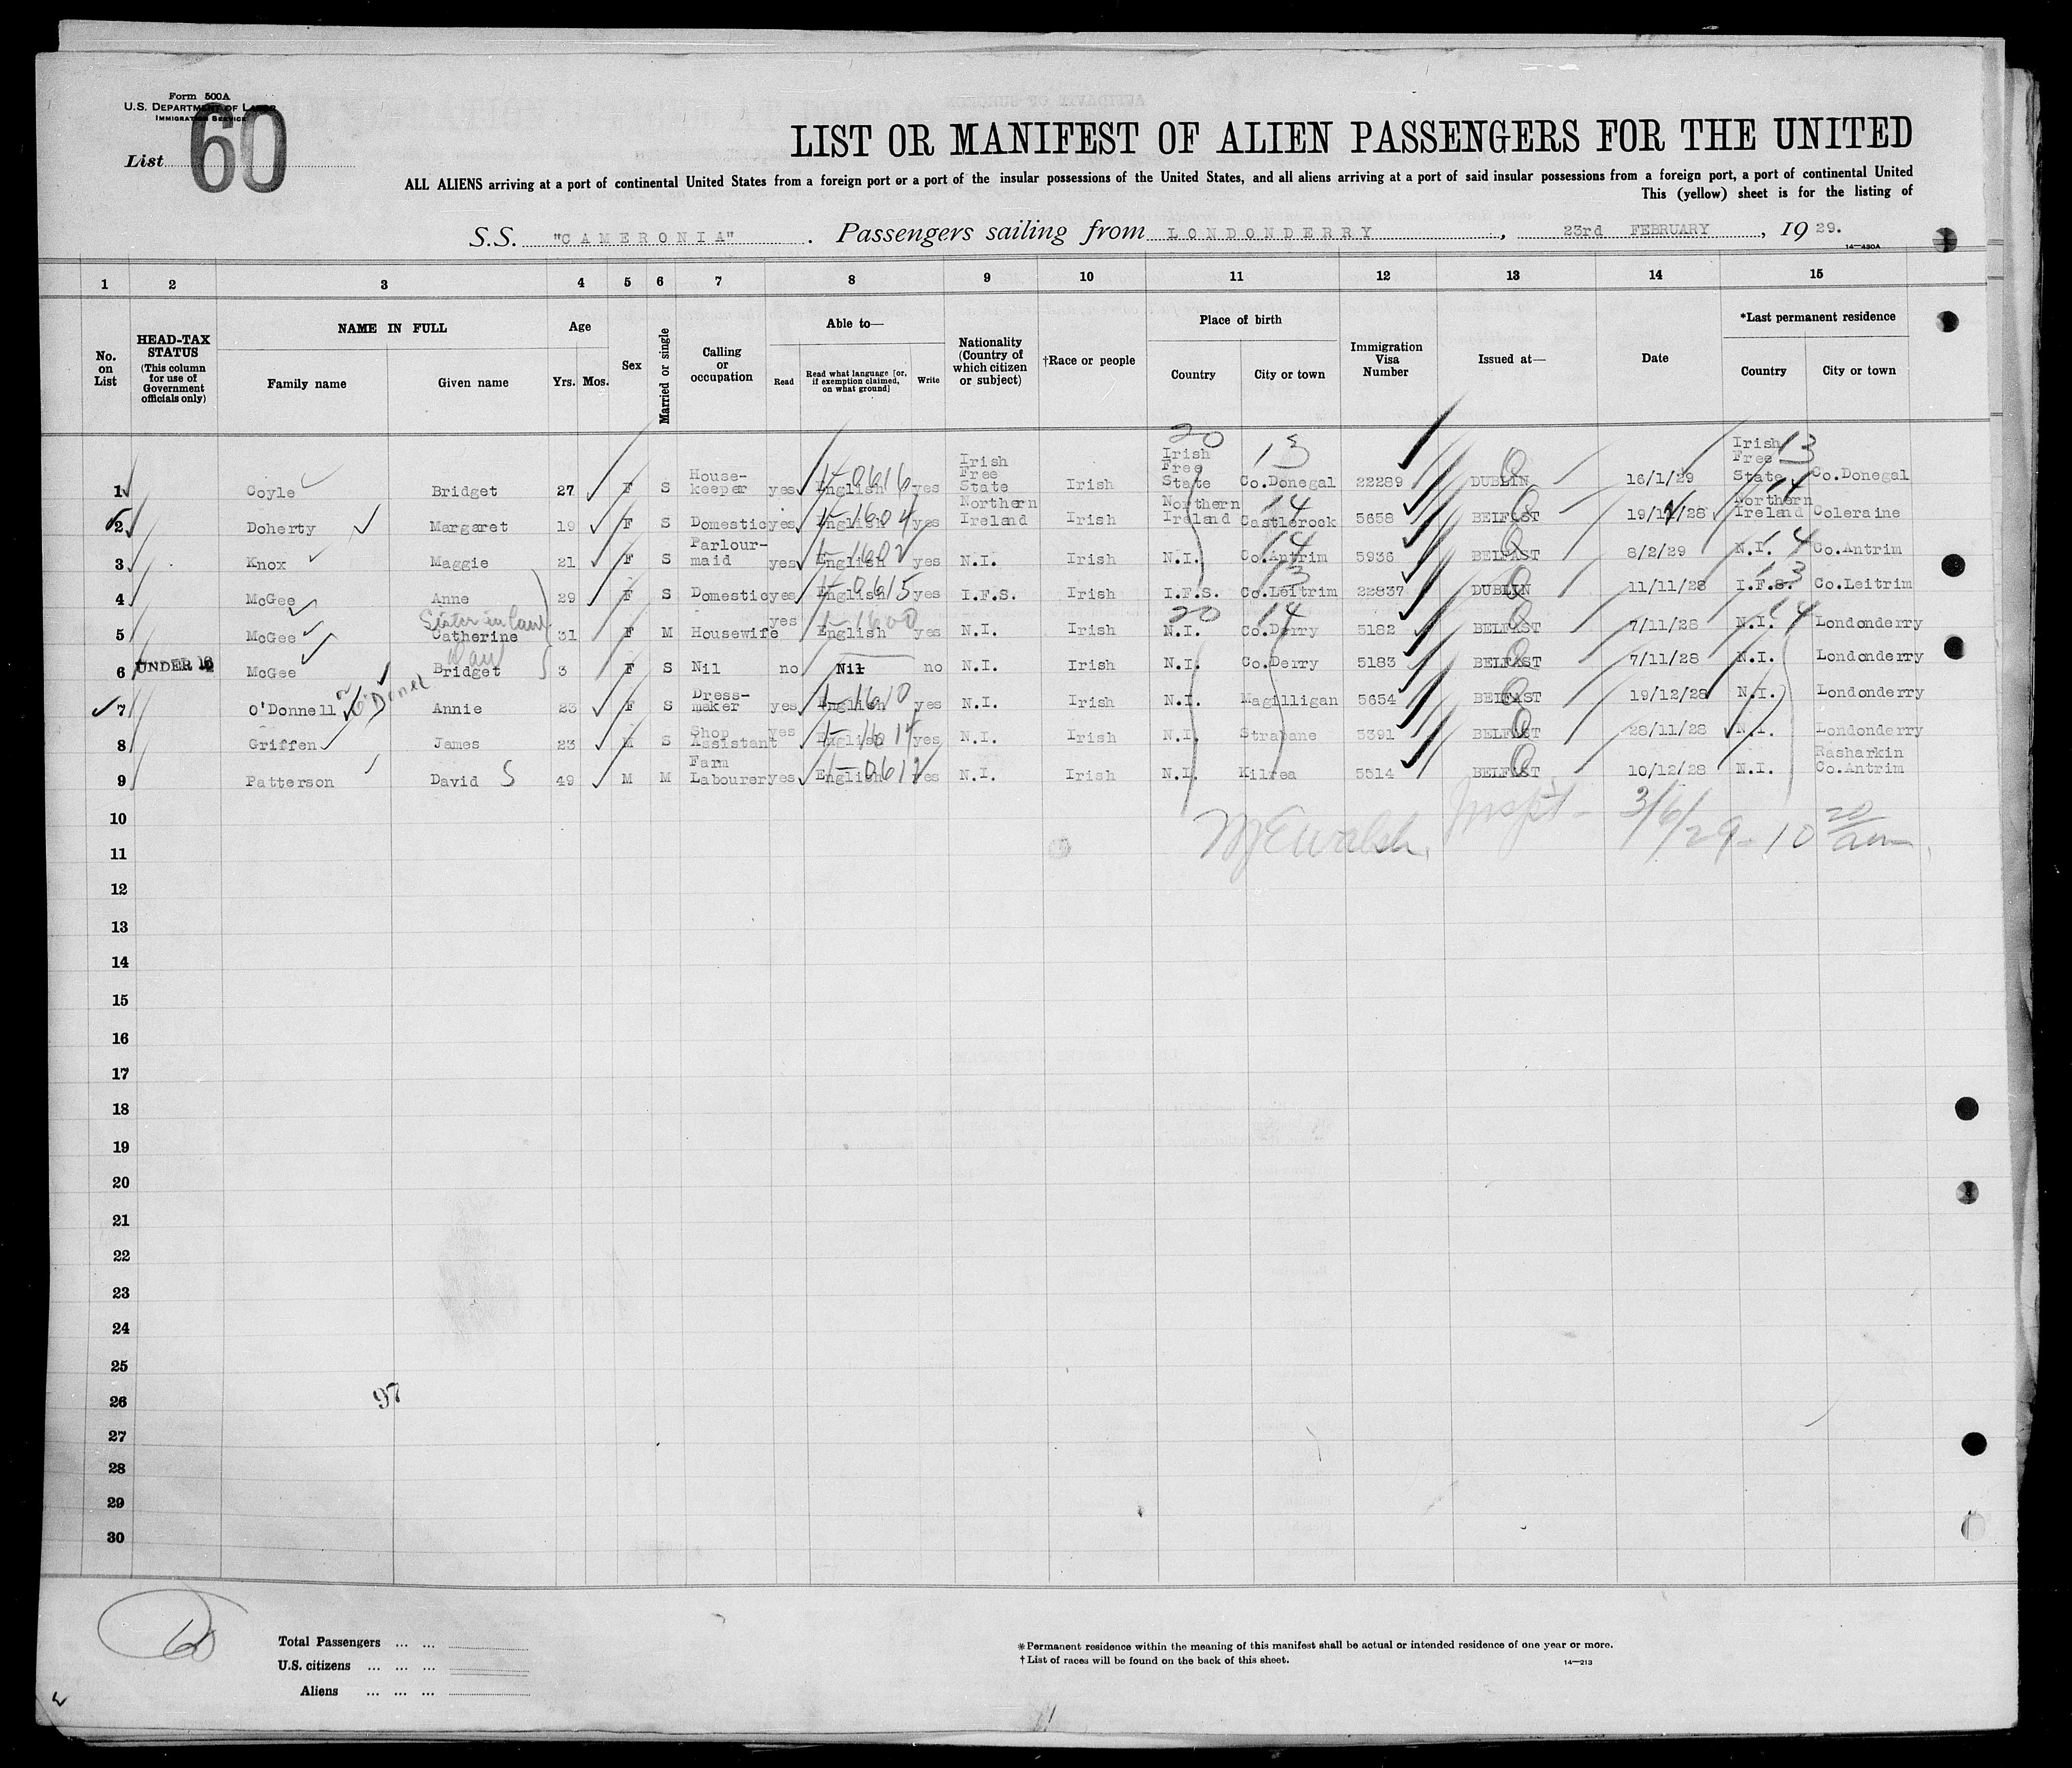 Form 500A
U.S. DEPARTMENT OF LABOR
IMMIGRATION SERVICE
List 60
LIST OR MANIFEST OF ALIEN PASSENGERS FOR THE UNITED
ALL ALIENS arriving at a port of continental United States from a foreign port or a port of the insular possessions of the United States, and all aliens arriving at a port of said insular possessions from a foreign port, a port of continental United
This (yellow) sheet is for the listing of
S.S. "CAMERONIA". Passengers sailing from LONDONDERRY, 23rd FEBRUARY, 1929.
14—430A
1 2 3 4 5 6 7 8 9 10 11 12 13 14 15
No. on List
HEAD-TAX STATUS (This column for use of Government officials only)
NAME IN FULL Family name Given name
Age Yrs. Mos.
Sex
Married or single
Calling or occupation
Able to— Read Read what language [or, if exemption claimed, on what ground] Write
Nationality (Country of which citizen or subject)
†Race or people
Place of birth Country City or town
Immigration Visa Number
Issued at—
Date
*Last permanent residence Country City or town
20 13 13
1 Coyle Bridget 27 F S House-keeper yes English 1-0616 yes Irish Free State Irish Irish Free State Co.Donegal 22289 DUBLIN 16/1/29 Irish Free State Co.Donegal
2 Doherty Margaret 19 F S Domestic yes English 1-1604 yes Northern Ireland Irish Northern Ireland 14 Castlerock 5658 BELFAST 19/12/28 Northern Ireland 14 Coleraine
3 Knox Maggie 21 F S Parlour-maid yes English 1-1602 yes N.I. Irish N.I. 14 Co.Antrim 5936 BELFAST 8/2/29 N.I. 14 Co.Antrim
4 McGee Anne 29 F S Domestic yes English 1-0615 yes I.F.S. Irish I.F.S. 13 Co.Leitrim 22837 DUBLIN 11/11/28 I.F.S. 13 Co.Leitrim
Sister in law
5 McGee Catherine 31 F M Housewife yes English 1-1600 yes N.I. Irish 20 N.I. 14 Co.Derry 5182 BELFAST 7/11/28 N.I. 14 Londonderry
Dau
6 UNDER 16 McGee Bridget 3 F S Nil no Nil no N.I. Irish N.I. Co.Derry 5183 BELFAST 7/11/28 N.I. Londonderry
7 O'Donnell or O'Donel Annie 23 F S Dress-maker yes English 1-1610 yes N.I. Irish N.I. Magilligan 5654 BELFAST 19/12/28 N.I. Londonderry
8 Griffen James 23 M S Shop Assistant yes English 1-1614 yes N.I. Irish N.I. Strabane 5391 BELFAST 28/11/28 N.I. Londonderry
9 Patterson David S 49 M M Farm Labourer yes English 1-0612 yes N.I. Irish N.I. Kilrea 5514 BELFAST 10/12/28 N.I. Rasharkin Co.Antrim
10
M E Walsh Inspt - 3/6/29 - 10 20 am
11
12
13
14
15
16
17
18
19
20
21
22
23
24
25
26
97
27
28
29
30
60
Total Passengers ... ...
U.S. citizens ... ... ...
Aliens ... ... ...
*Permanent residence within the meaning of this manifest shall be actual or intended residence of one year or more.
†List of races will be found on the back of this sheet.
14—213